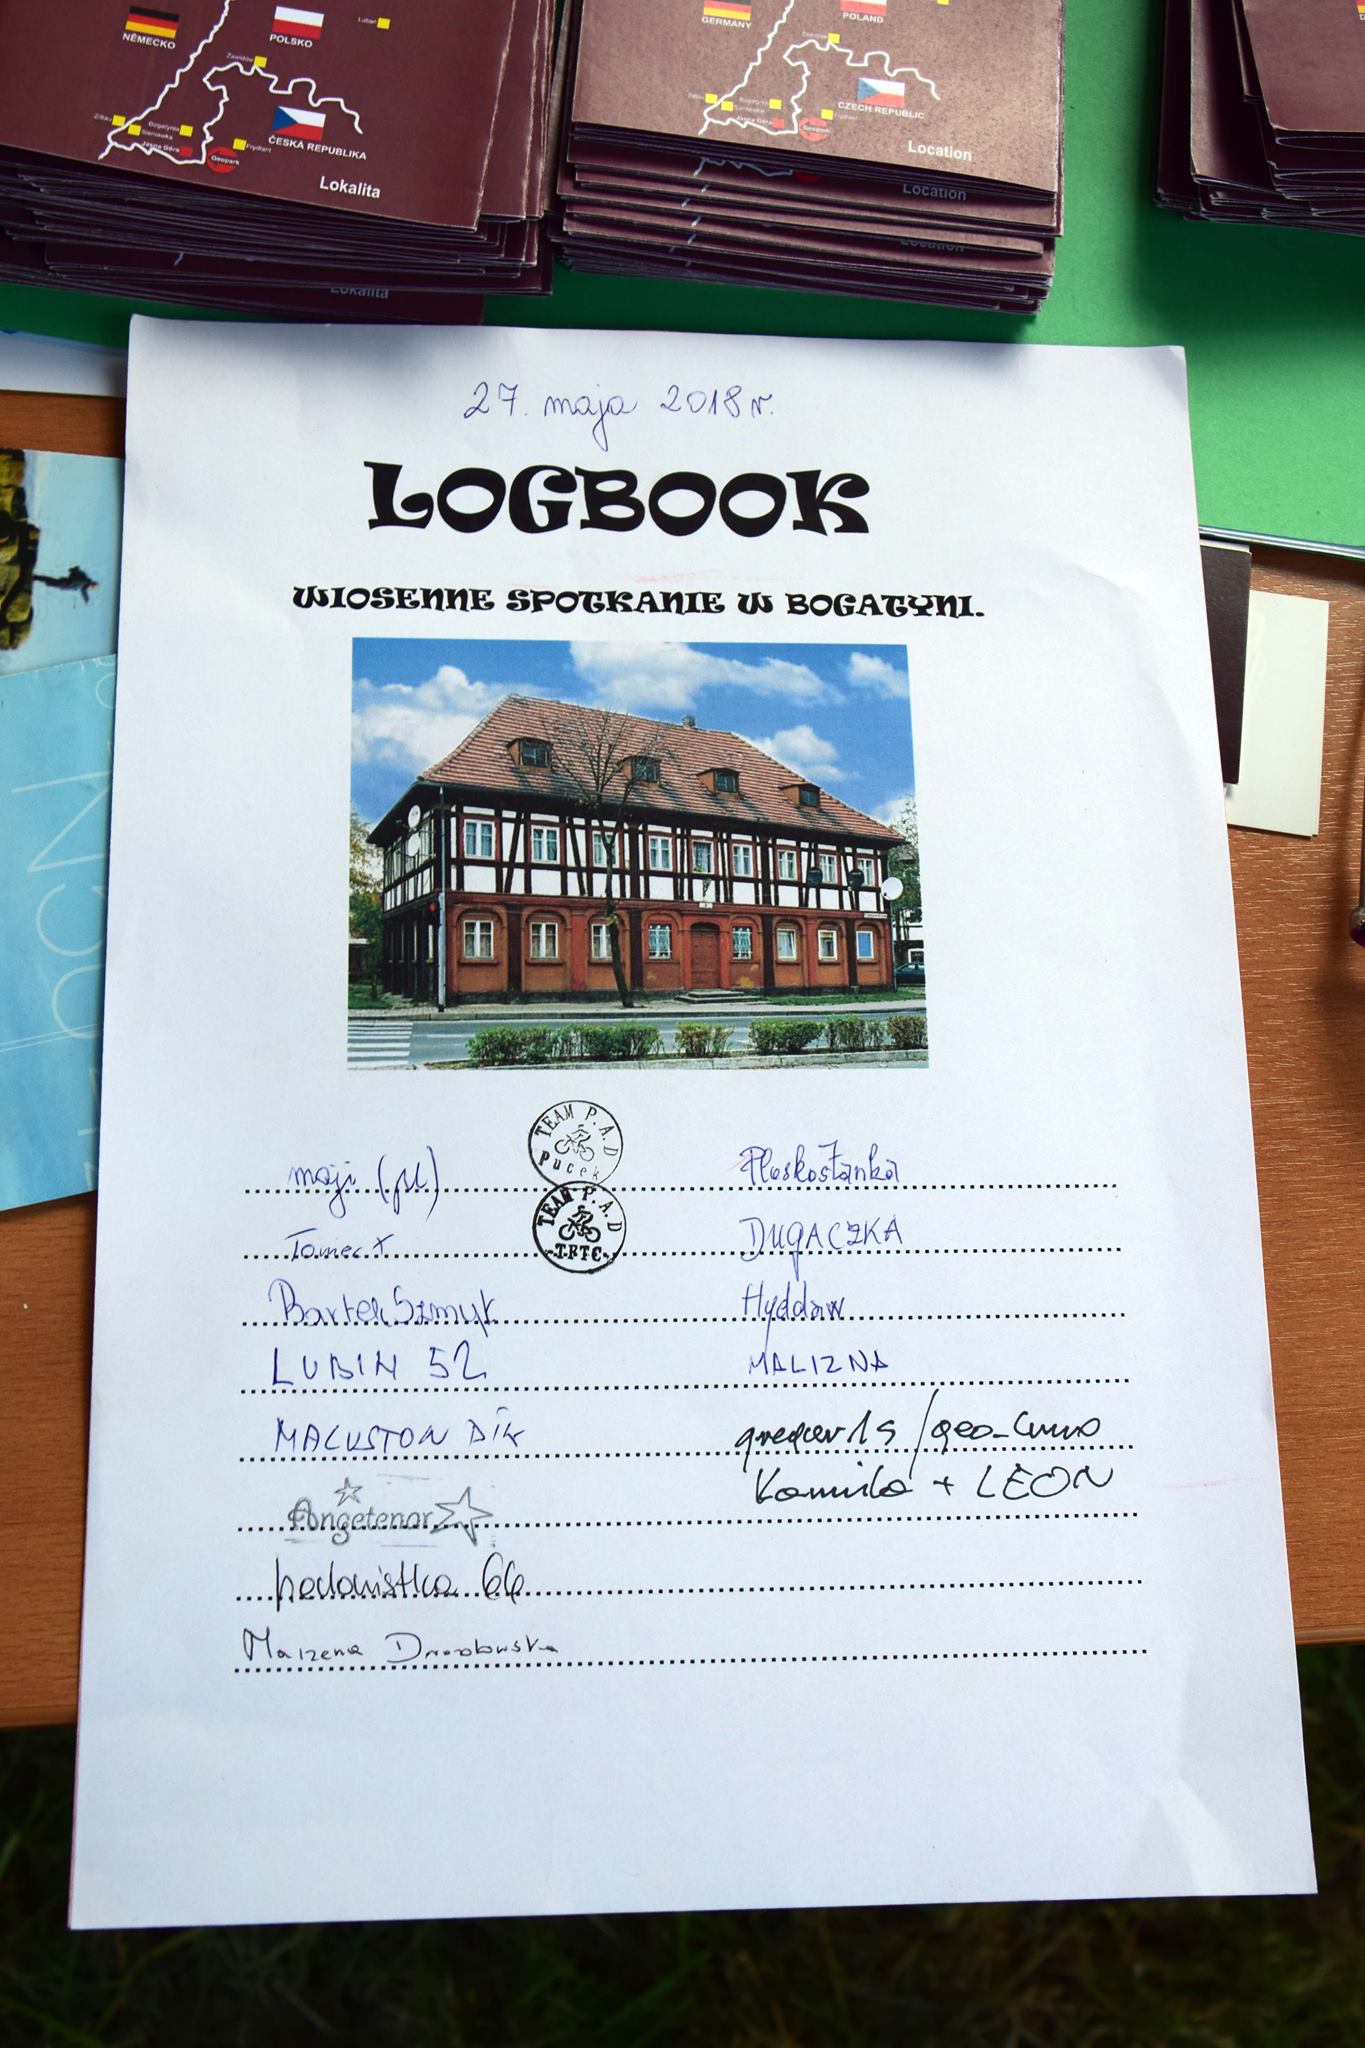 NĚMECKO
POLSKO
Lubań
Zawidów
ČESKÁ REPUBLIKA
Zittau
Bogatynia
Sieniawka
Jasna Góra
Geopark
Frýdlant
Lokalita
Lokalita
GERMANY
POLAND
Zawidów
CZECH REPUBLIC
Zittau
Bogatynia
Sieniawka
Jasna Góra
Geopark
Frýdlant
Location
Location
Location
27. maja 2018 r.
LOGBOOK
WIOSENNE SPOTKANIE W BOGATYNI.
TEAM P.A.D
Pucek
maji (pl)
PłaskosTanka
TEAM P.A.D
TRTC
Tomec X
DUGACZKA
Bartek Szmyt
Hyddaw
LUBIN 52
MALIZNA
/geo_
Kamila + LEON
Angetenar
hedonistka 66
Marzena Drozdowska